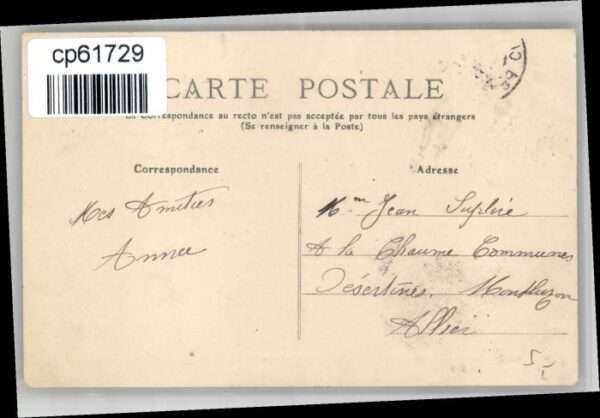 cp61729
CARTE POSTALE
La Correspondance au recto n'est pas acceptée par tous les pays étrangers
(Se renseigner à la Poste)
Correspondance
Adresse
Mes Amitiés
Année
Mme Jean
A la Chaume Communes
Désertines. Montluçon
Allier